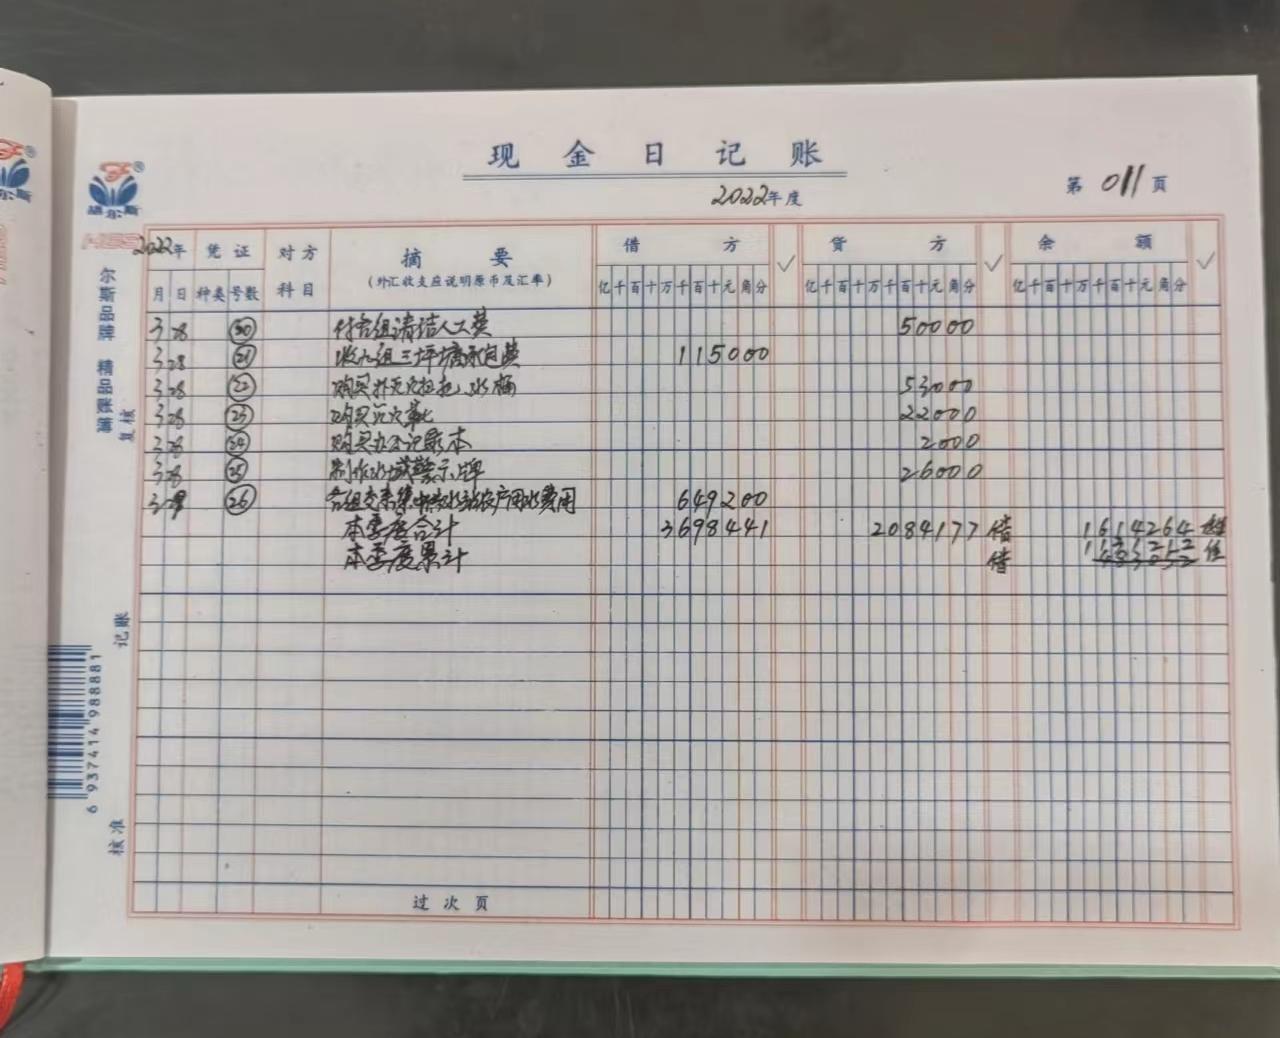 现金日记账
2022年度
第 011 页
2022年 凭证 对方科目 摘要 借方 ✓ 贷方 ✓ 余额 ✓
(外汇收支应说明原币及汇率)
月 日 种类 号数 亿千百十万千百十元角分 亿千百十万千百十元角分 亿千百十万千百十元角分
3 28 付各组清洁人工费 50000
3 28 21 收九组三坪塘承包费 115000
3 28 22 购买扑灭火拖把、水桶 53000
3 28 23 购买 22000
3 28 24 购买办公记录本 2000
3 28 25 制作水域警示牌 26000
3 29 26 各组交来集中供水站农户用水费用 649200
本季度合计 3698441 2084177 借 1614264
本季度累计 借
过次页
尔斯品牌 精品账簿
复核
记账
核准
6 937414 988881